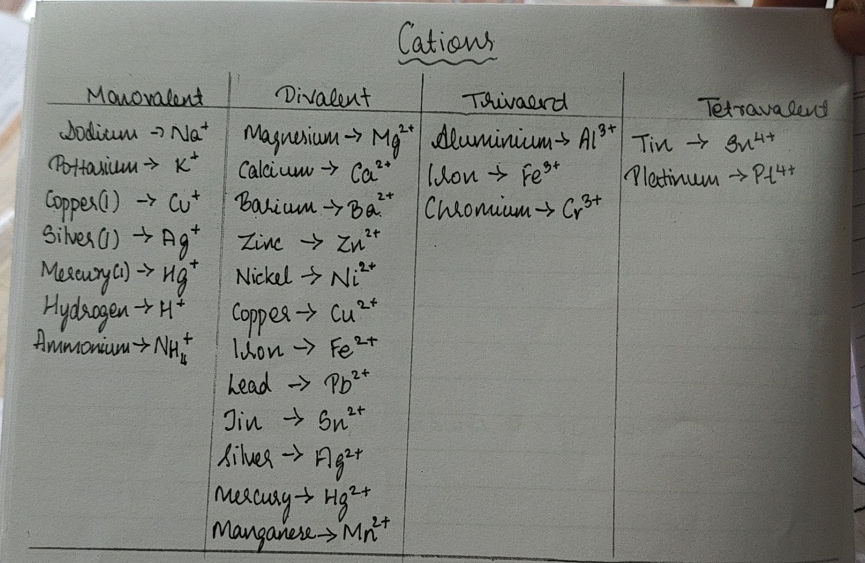 Cations
Monovalent Divalent Trivalend Tetravalent
Sodium → Na⁺ Magnesium → Mg²⁺ Aluminium → Al³⁺ Tin → Sn⁴⁺
Pottasium → K⁺ Calcium → Ca²⁺ Iron → Fe³⁺ Platinum → Pt⁴⁺
Copper(I) → Cu⁺ Barium → Ba²⁺ Chromium → Cr³⁺
Silver(I) → Ag⁺ Zinc → Zn²⁺
Mercury(I) → Hg⁺ Nickel → Ni²⁺
Hydrogen → H⁺ Copper → Cu²⁺
Ammonium → NH₄⁺ Iron → Fe²⁺
Lead → Pb²⁺
Tin → Sn²⁺
Silver → Ag²⁺
Mercury → Hg²⁺
Manganese → Mn²⁺